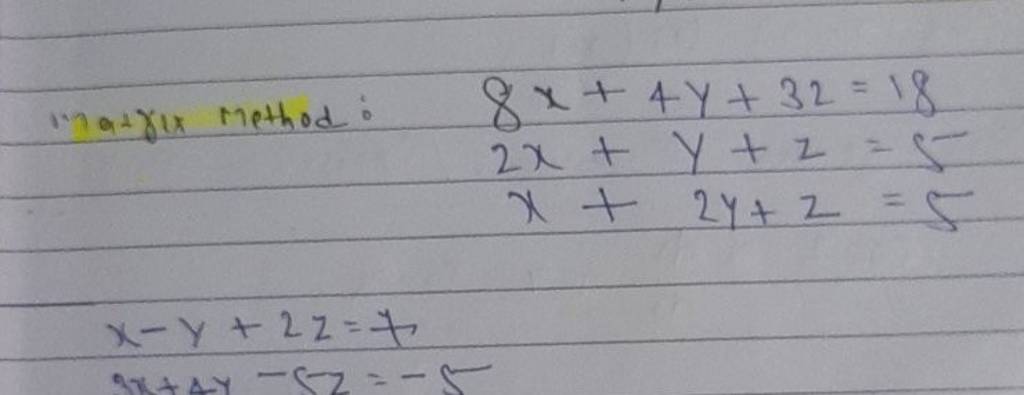 Matrix Method: 8x + 4y + 3z = 18
2x + y + z = 5
x + 2y + z = 5
x - y + 2z = 7
3x + 4y - 5z = -5